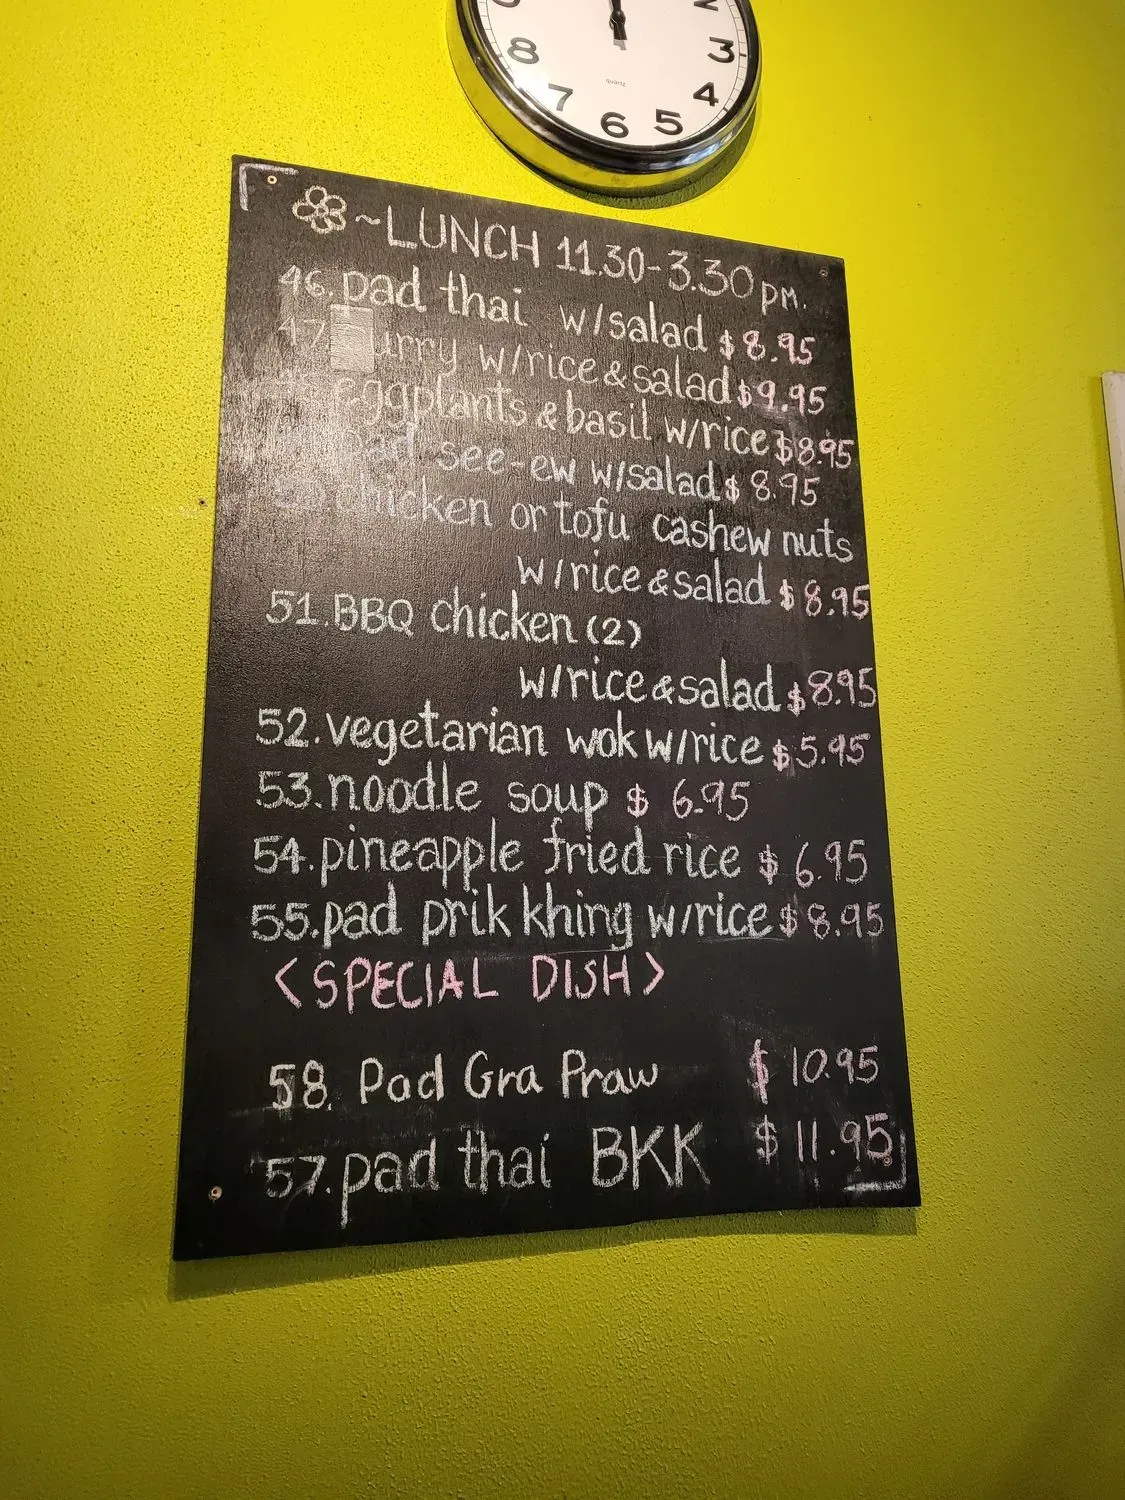 8
7
6
5
4
3
2
quartz
~LUNCH 11.30-3.30 pm.
46. pad thai w/salad $8.95
47 urry w/rice & salad $9.95
eggplants & basil w/rice $8.95
pad see-ew w/salad $8.95
chicken or tofu cashew nuts
w/rice & salad $8.95
51. BBQ chicken (2)
w/rice & salad $8.95
52. vegetarian wok w/rice $5.95
53. noodle soup $ 6.95
54. pineapple fried rice $ 6.95
55. pad prik khing w/rice $8.95
<SPECIAL DISH>
58. Pad Gra Praw $ 10.95
57. pad thai BKK $ 11.95